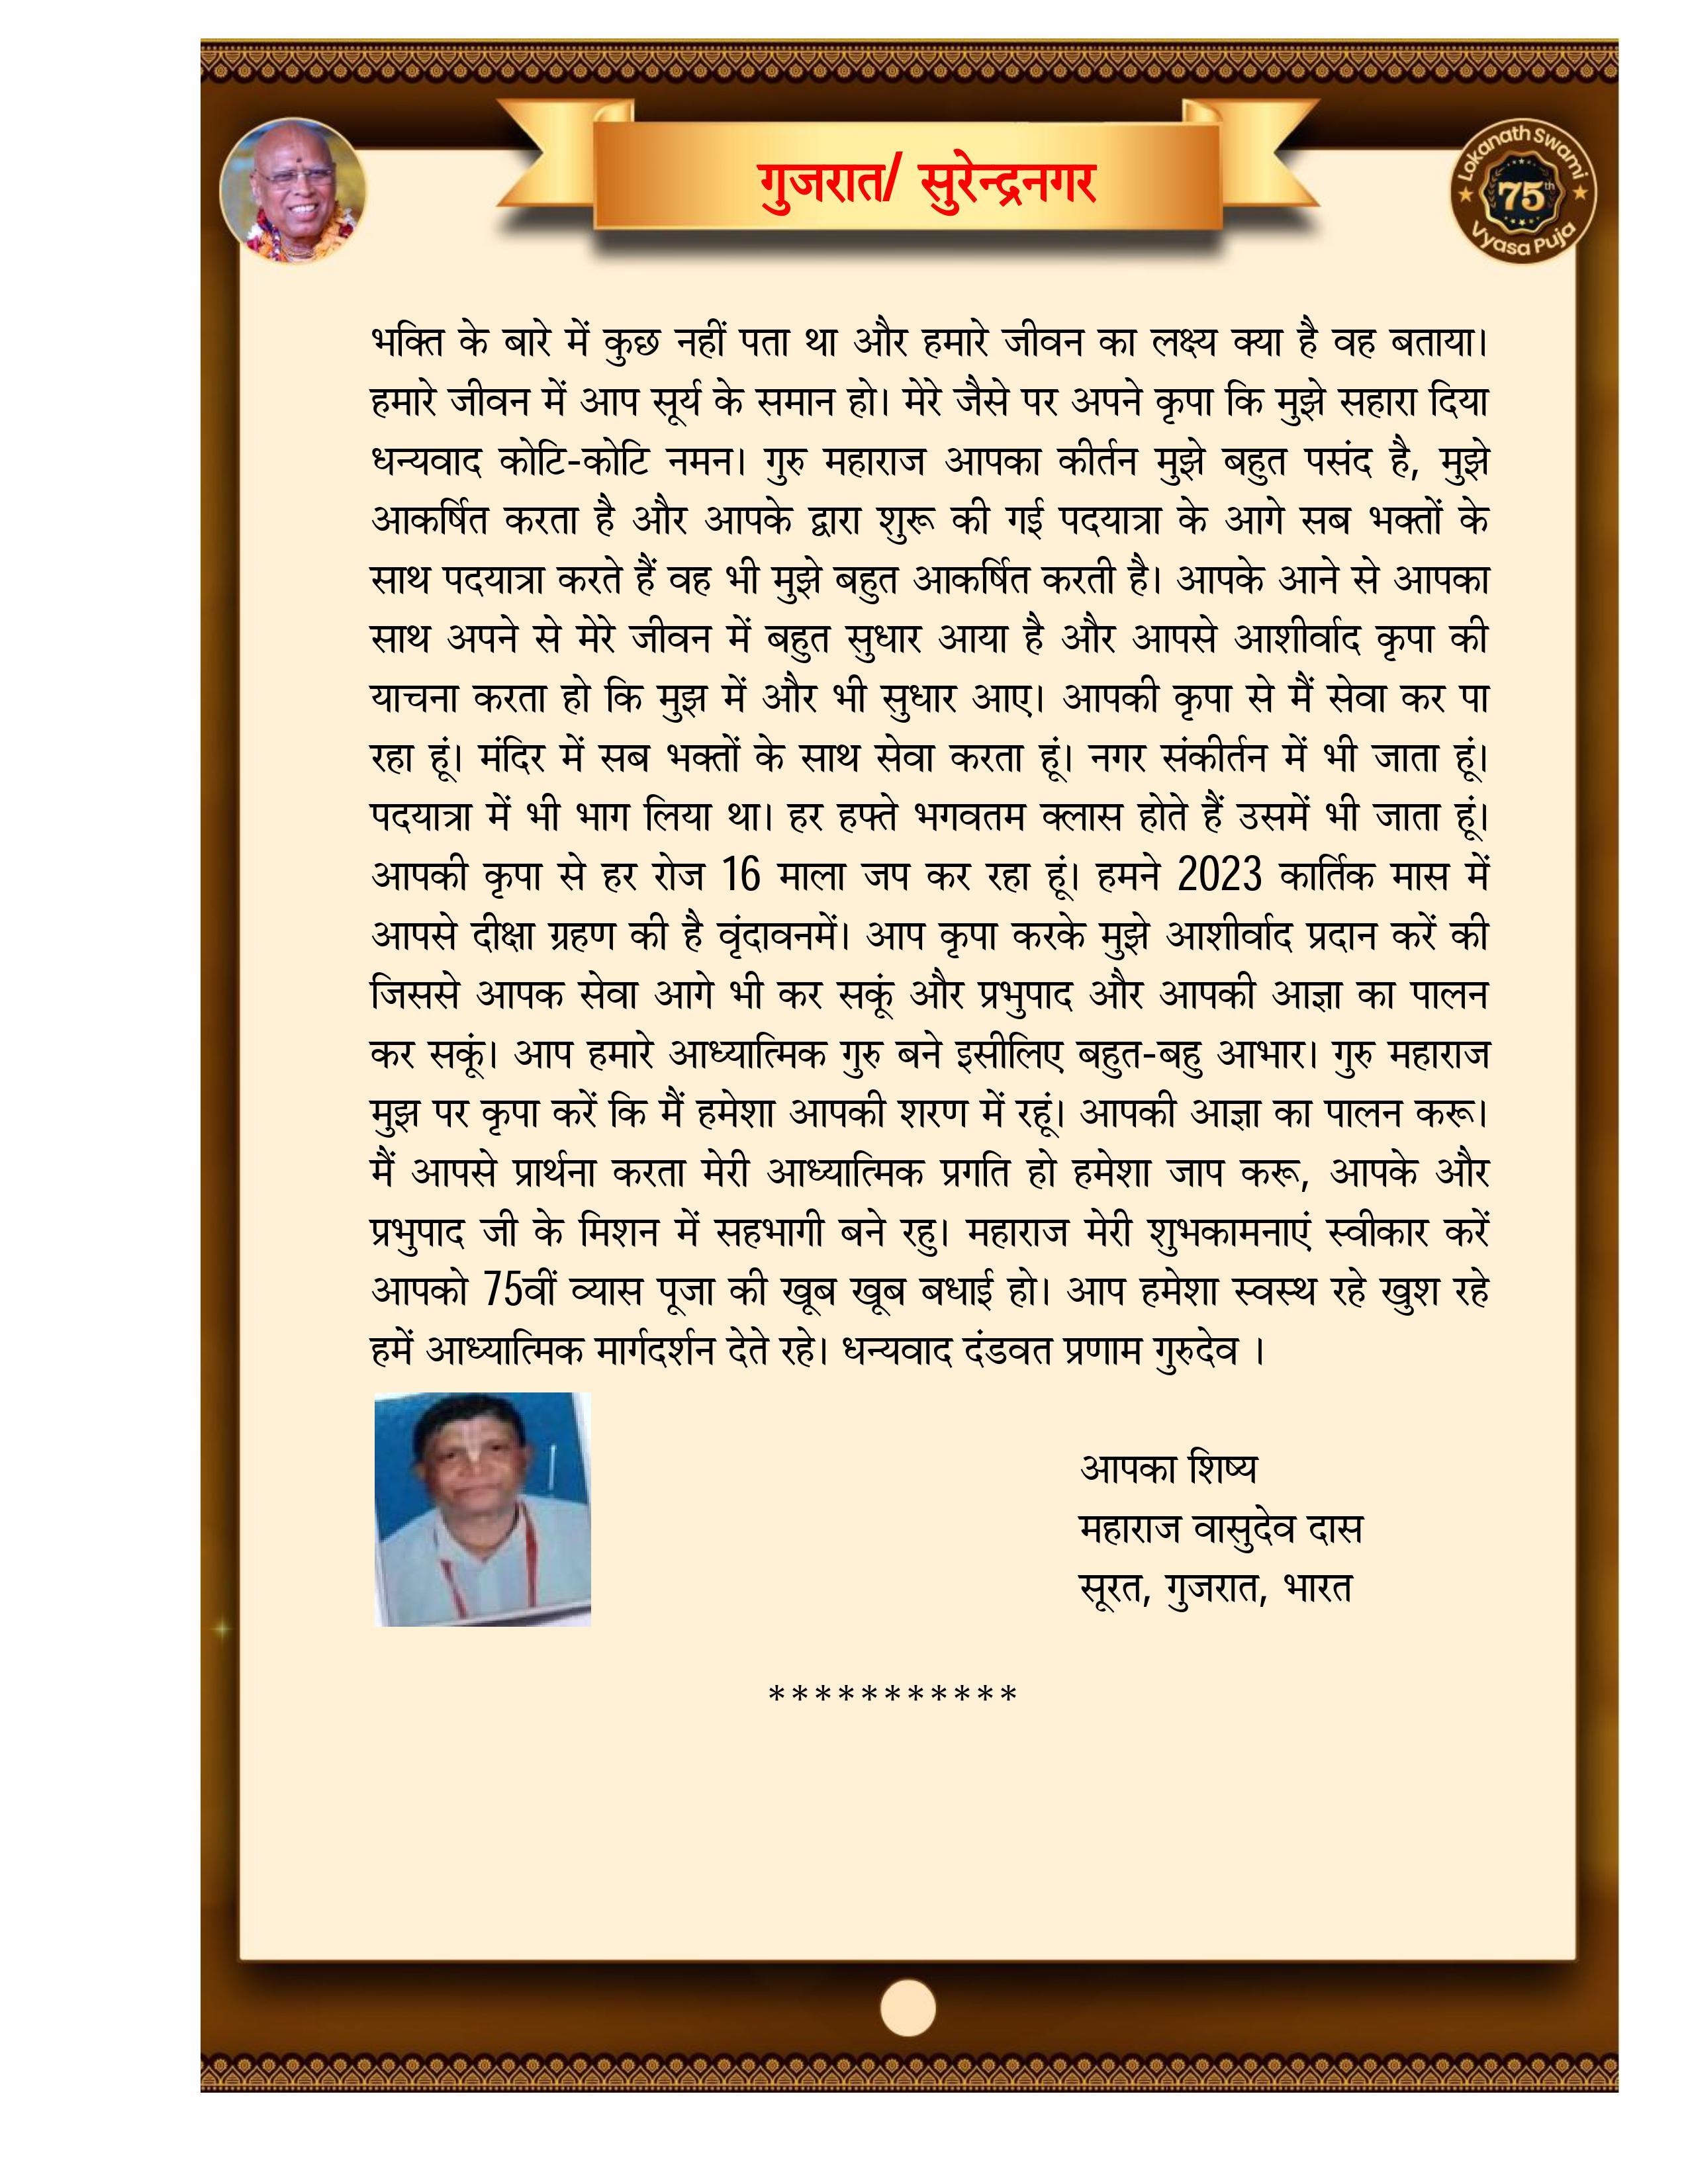 गुजरात/ सुरेन्द्रनगर
Lokanath Swami
75th
Vyasa Puja
भक्ति के बारे में कुछ नहीं पता था और हमारे जीवन का लक्ष्य क्या है वह बताया।
हमारे जीवन में आप सूर्य के समान हो। मेरे जैसे पर अपने कृपा कि मुझे सहारा दिया
धन्यवाद कोटि-कोटि नमन। गुरु महाराज आपका कीर्तन मुझे बहुत पसंद है, मुझे
आकर्षित करता है और आपके द्वारा शुरू की गई पदयात्रा के आगे सब भक्तों के
साथ पदयात्रा करते हैं वह भी मुझे बहुत आकर्षित करती है। आपके आने से आपका
साथ अपने से मेरे जीवन में बहुत सुधार आया है और आपसे आशीर्वाद कृपा की
याचना करता हो कि मुझ में और भी सुधार आए। आपकी कृपा से मैं सेवा कर पा
रहा हूं। मंदिर में सब भक्तों के साथ सेवा करता हूं। नगर संकीर्तन में भी जाता हूं।
पदयात्रा में भी भाग लिया था। हर हफ्ते भगवतम क्लास होते हैं उसमें भी जाता हूं।
आपकी कृपा से हर रोज 16 माला जप कर रहा हूं। हमने 2023 कार्तिक मास में
आपसे दीक्षा ग्रहण की है वृंदावनमें। आप कृपा करके मुझे आशीर्वाद प्रदान करें की
जिससे आपक सेवा आगे भी कर सकूं और प्रभुपाद और आपकी आज्ञा का पालन
कर सकूं। आप हमारे आध्यात्मिक गुरु बने इसीलिए बहुत-बहु आभार। गुरु महाराज
मुझ पर कृपा करें कि मैं हमेशा आपकी शरण में रहूं। आपकी आज्ञा का पालन करू।
मैं आपसे प्रार्थना करता मेरी आध्यात्मिक प्रगति हो हमेशा जाप करू, आपके और
प्रभुपाद जी के मिशन में सहभागी बने रहु। महाराज मेरी शुभकामनाएं स्वीकार करें
आपको 75वीं व्यास पूजा की खूब खूब बधाई हो। आप हमेशा स्वस्थ रहे खुश रहे
हमें आध्यात्मिक मार्गदर्शन देते रहे। धन्यवाद दंडवत प्रणाम गुरुदेव ।
आपका शिष्य
महाराज वासुदेव दास
सूरत, गुजरात, भारत
***********